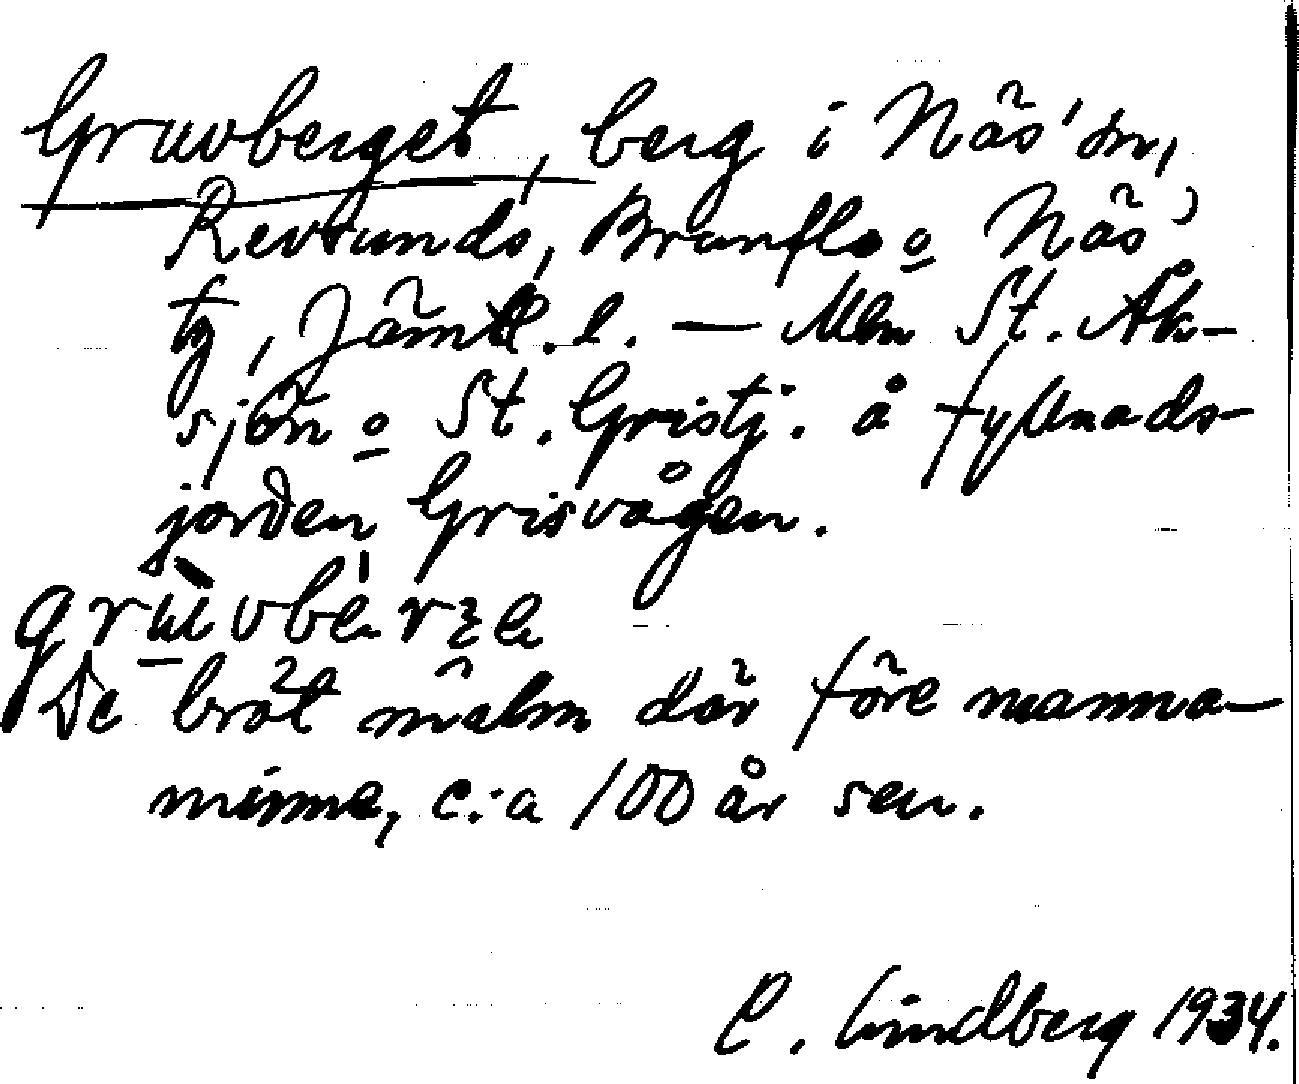 Gruvberget, berg i Näs' sn,
Revsunds, Brunflo o Näs'
tg, Jämtl. l. — Mln St. Åk-
sjön o St. Gristj. å fyllnads-
jorden Grisvågen.
grùvbèrʒe
De bröt malm där före manna-
minne, c:a 100 år sen.
C. Lindberg 1934.